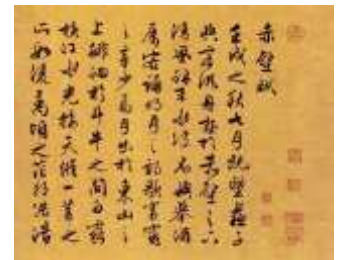 赤壁賦
壬戌之秋七月既望蘇子
與客泛舟遊於赤壁之下
清風徐来水波不興舉酒
屬客誦明月之詩歌窈窕
之章少焉月出於東山之
上徘徊於斗牛之間白露
橫江水光接天縱一葦之
所如凌萬頃之茫然浩浩